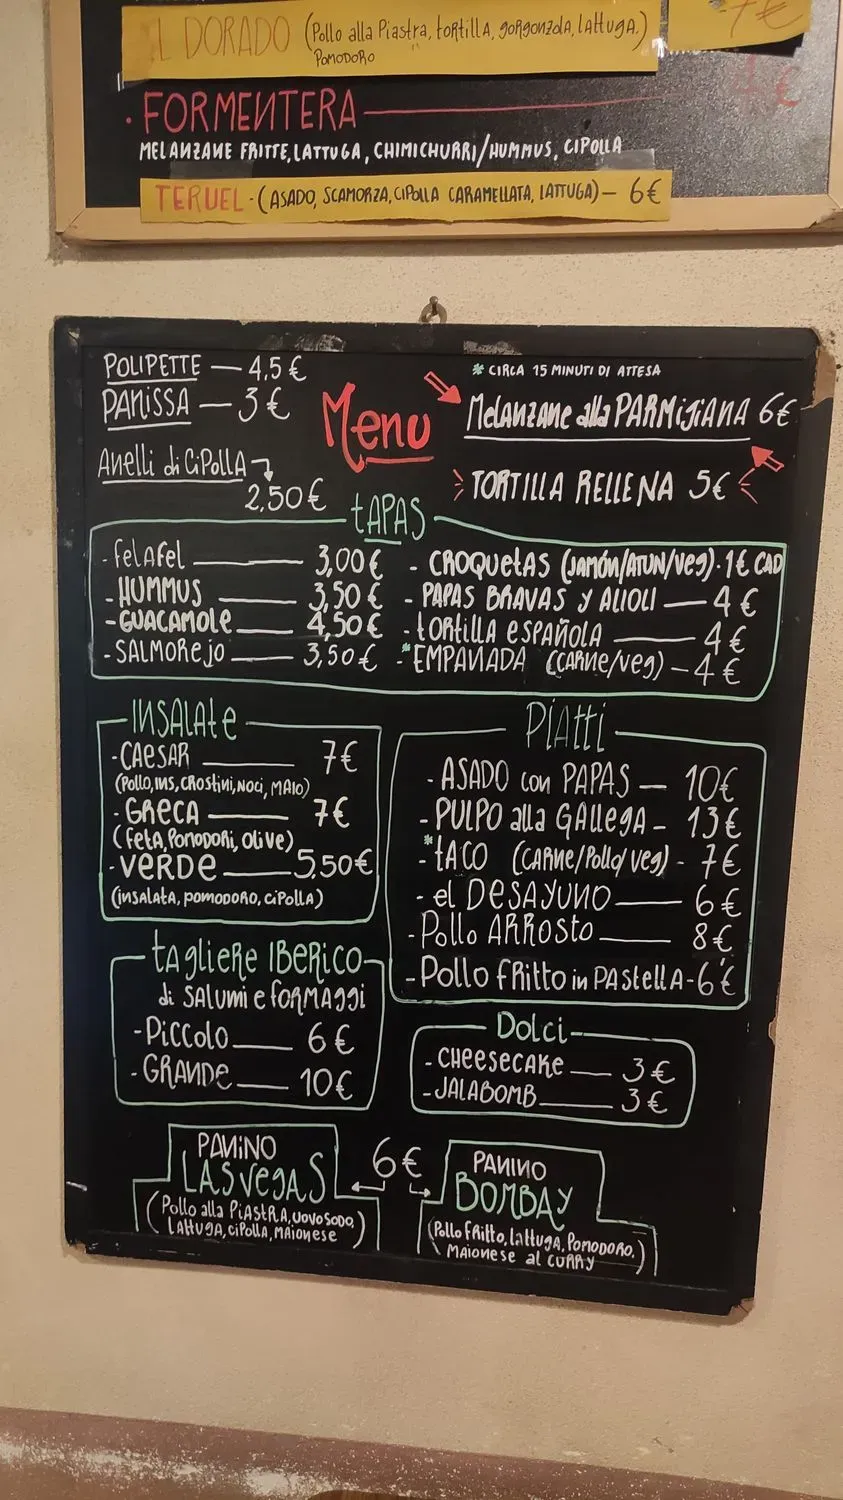 L DORADO (Pollo alla Piastra, tortilla, gorgonzola, lattuga.)
POMODORO
7€
· FORMENTERA
€
MELANZANE FRITTE, LATTUGA, CHIMICHURRI/HUMMUS, CIPOLLA
TERUEL - (ASADO, SCAMORZA, CIPOLLA CARAMELLATA, LATTUGA) — 6€
POLIPETTE — 4,5€
PANISSA — 3€
Anelli di CIPOLLA
2,50€
Menu
* CIRCA 15 MINUTI DI ATTESA
Melanzane alla PARMIJIANA 6€
TORTILLA RELLENA 5€
tAPAS
- FelAfel — 3,00€
- HUMMUS — 3,50€
- GUACAMOLE — 4,50€
- SALMOREJO — 3,50€
- CROQUETAS (JAMÓN/ATUN/Veg). 1€ CAD
- PAPAS BRAVAS y ALIOLI — 4€
- tORtillA eSPAÑOLA — 4€
- *EMPANADA (CARNe/veg) — 4€
INSALAte
- CAESAR — 7€
(Pollo, INS, CROStINI, NOCI, MAIO)
- GRECA — 7€
(FetA, POMODORI, OlIVe)
- VERDE — 5,50€
(INSALATA, POMODORO, CIPOLLA)
PIAtti
- ASADO con PAPAS — 10€
- PULPO alla GAllEGA — 13€
- *tACO (CARNe/Pollo/veg) - 7€
- el DESAYUNO — 6€
- Pollo ARROSTO — 8€
- Pollo FRItto in PAStellA - 6€
tAglieRe IBeRICO
di SALUMI e FORMAggi
- PICCOLO — 6€
- GRANDE — 10€
DOLCI
- CHEESECAKE — 3€
- JALABOMB — 3€
PANINO
LAS VEGAS
(Pollo alla PIASTRA, UOVO SODO,
LAttUGA, CIPOLLA, MAIONESE)
6€
PANINO
BOMBAY
(Pollo FRItto, LAttUgA, POMODORO,
MAIONESE al CURRY)